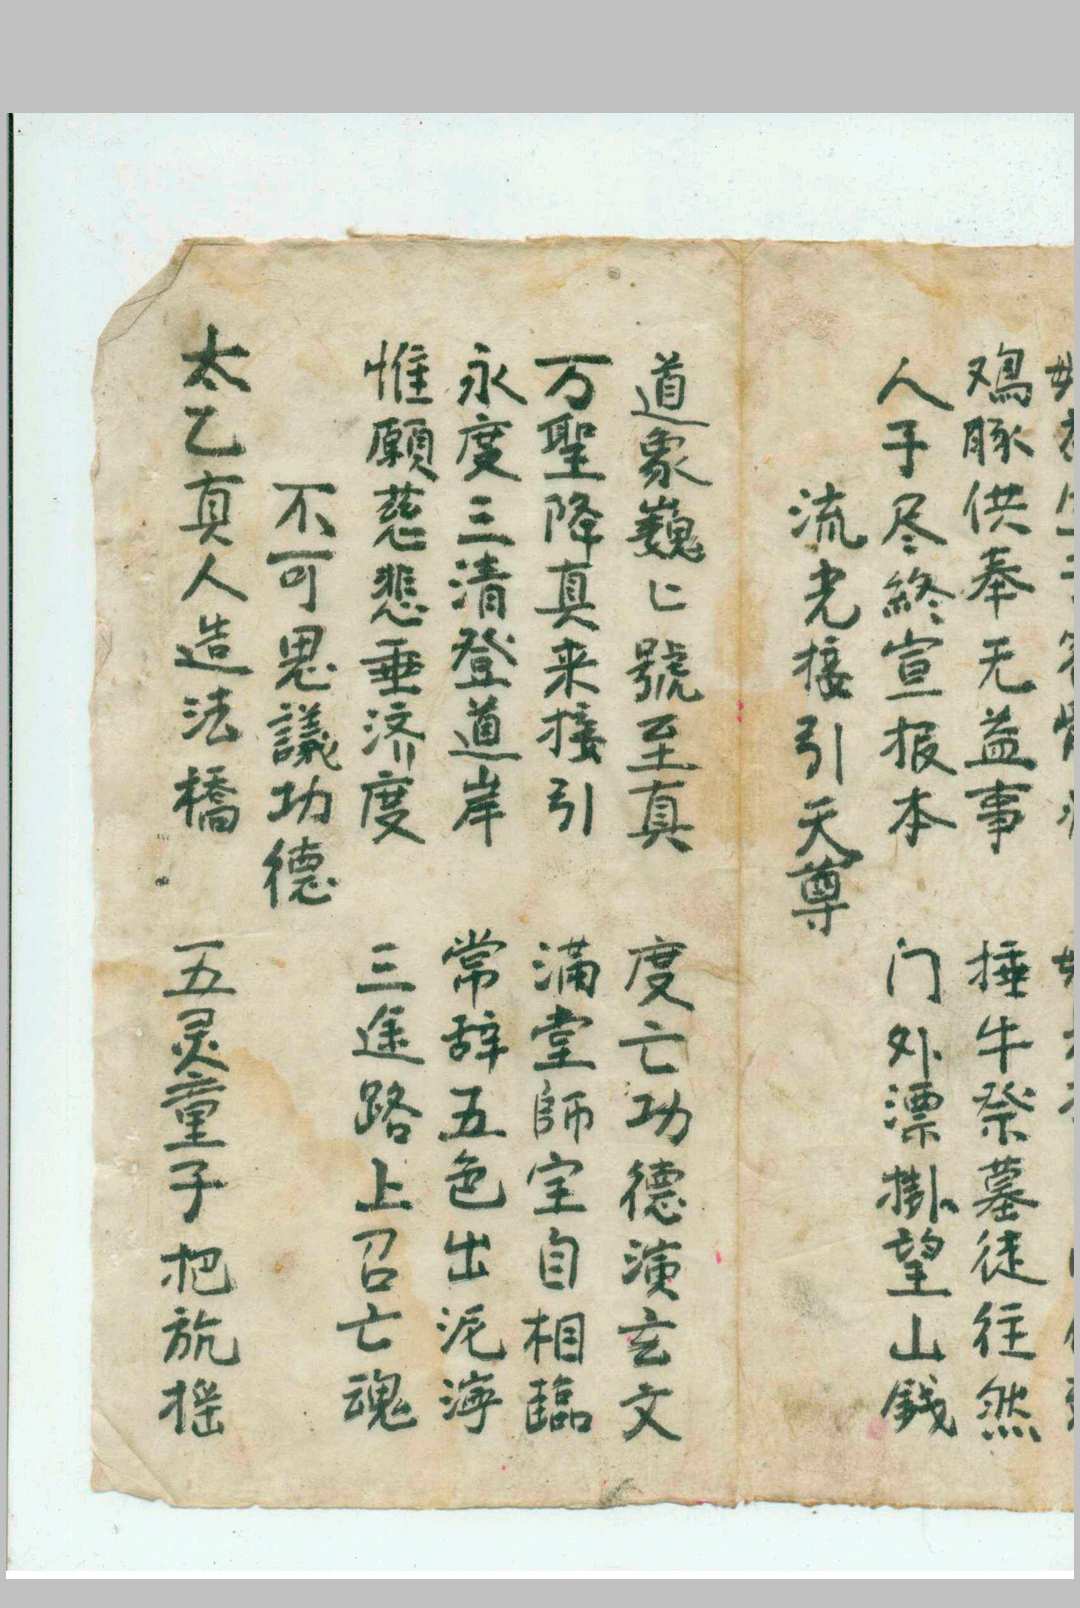 鳮豚供奉无益事　捶牛祭墓徒往然
人子尽終宣报本　门外漂掛望山錢
流光接引天尊
道象巍〻號至真　度亡功德演玄文
万聖降真来接引　滿堂師宝自相臨
永度三清登道岸　常辞五色出泥海
惟願慈悲垂济度　三途路上召亡魂
不可思議功德
太乙真人造法橋　五灵童子把旐搖